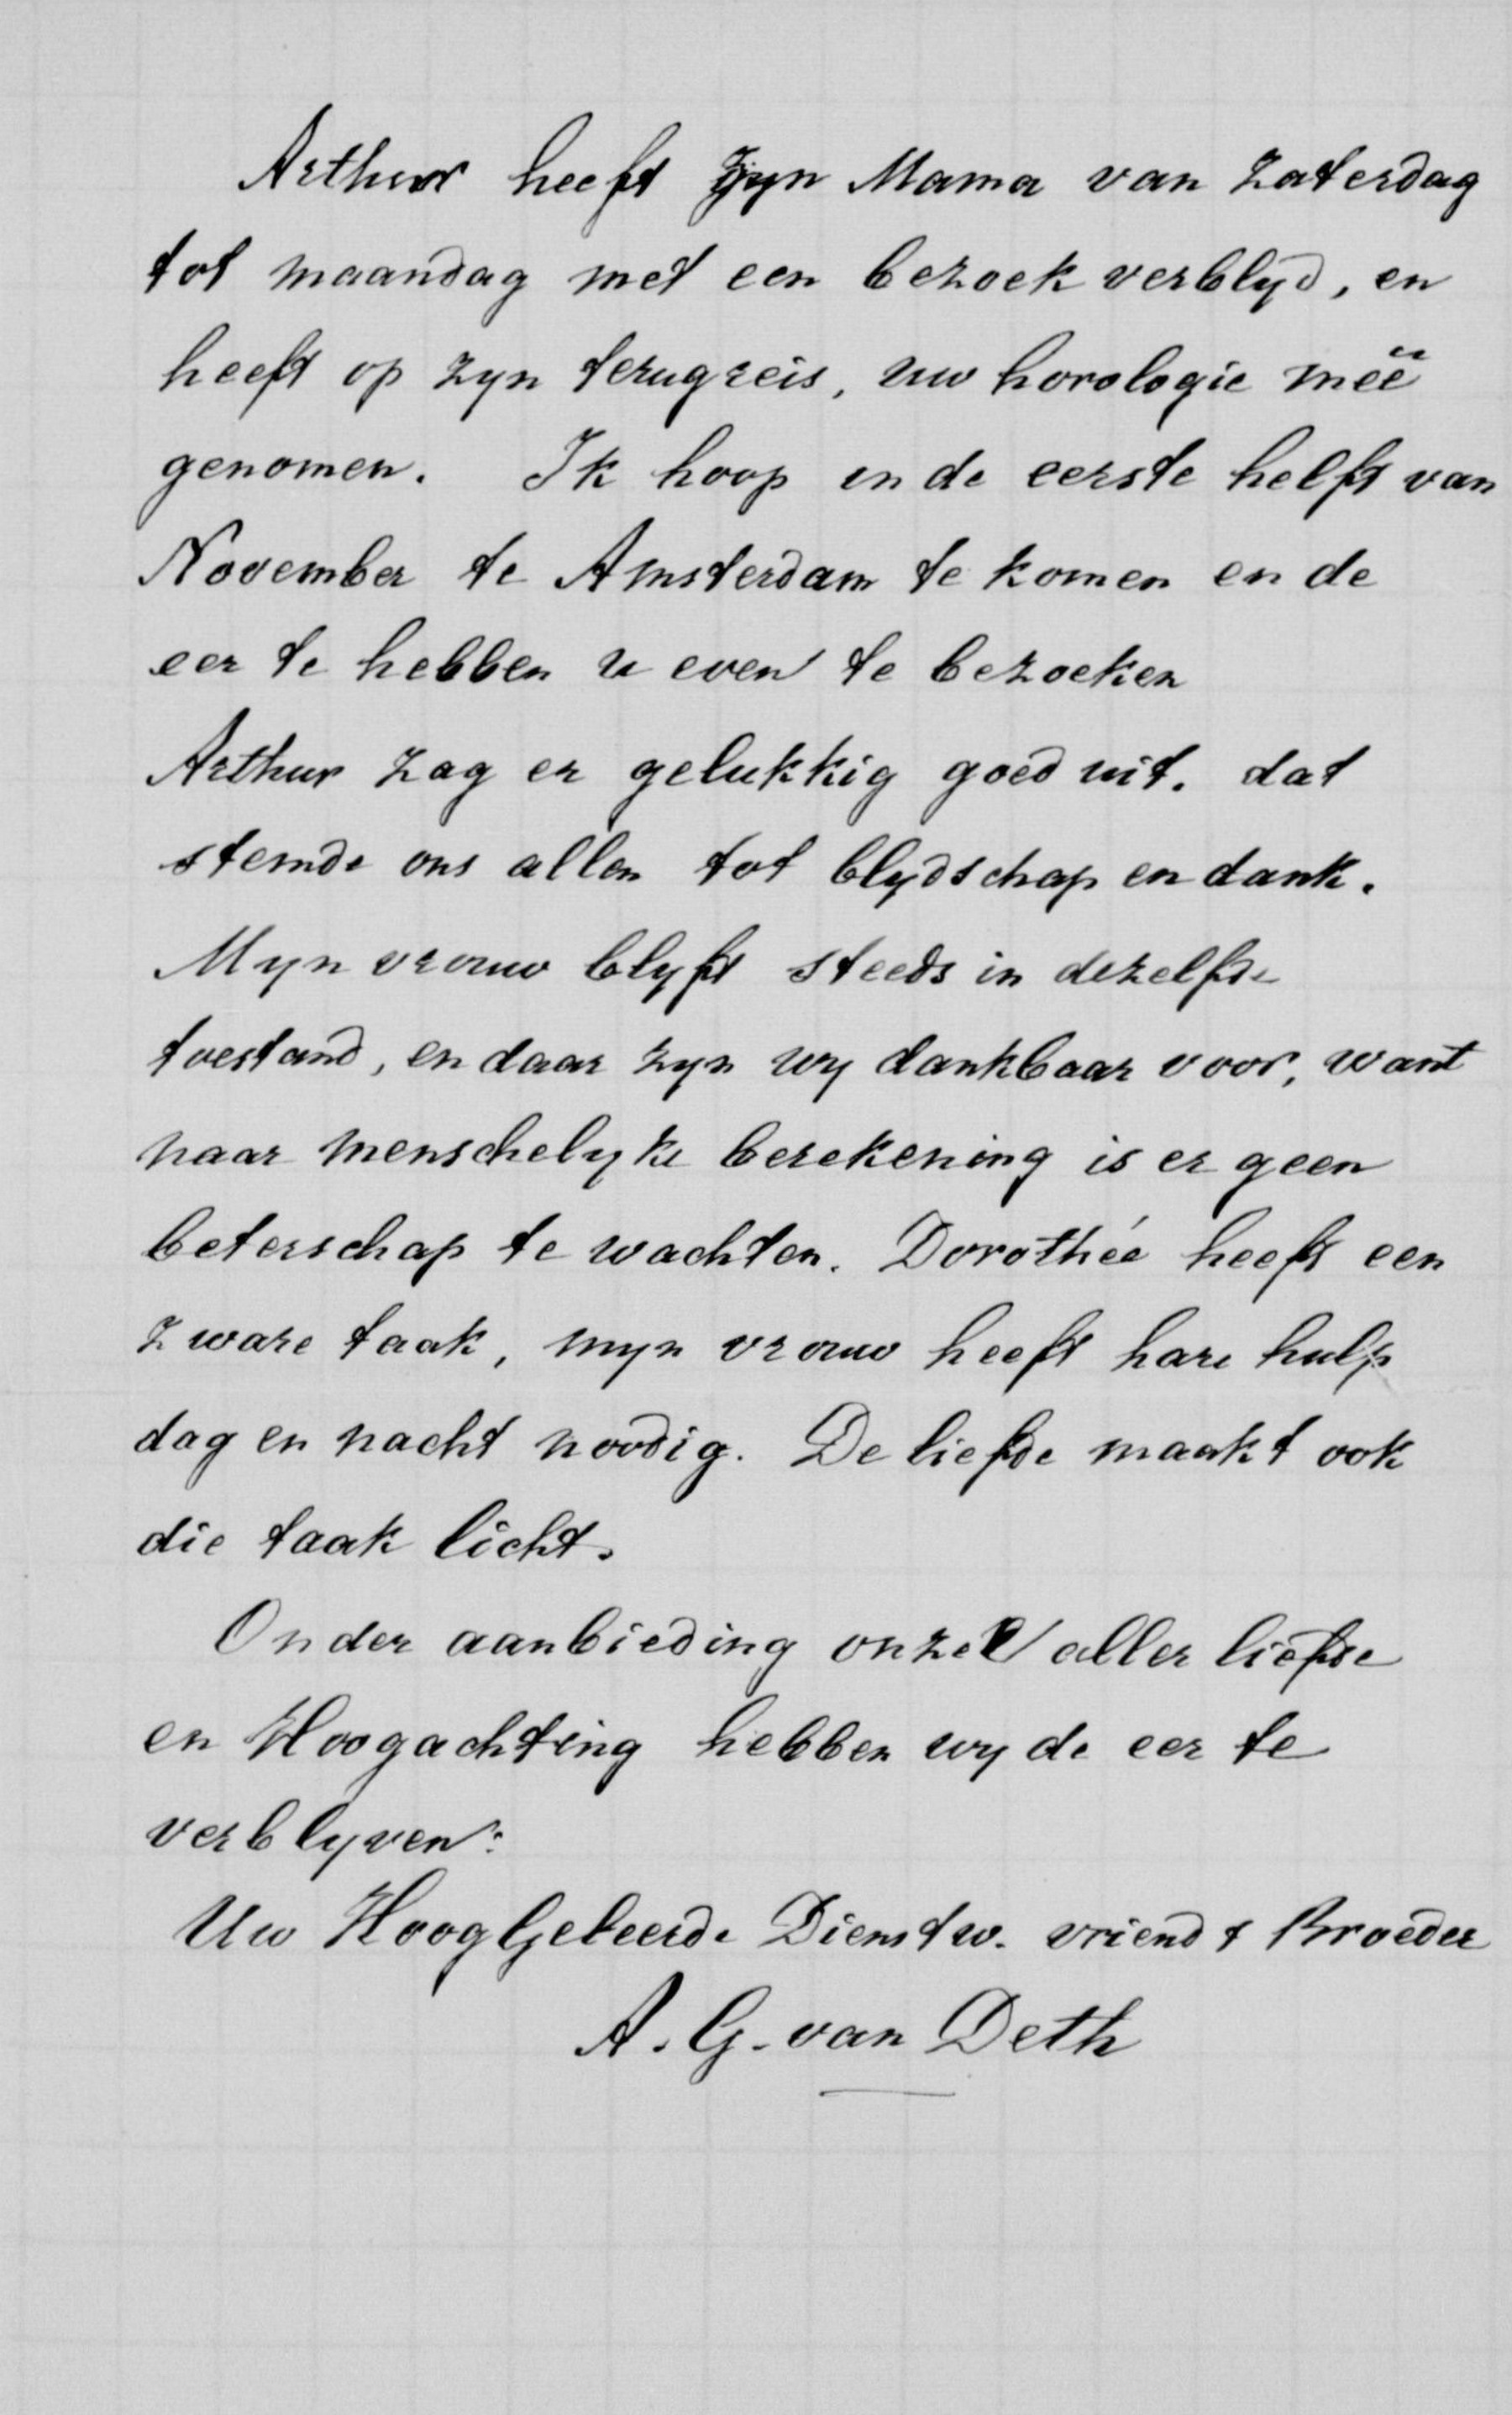 Arthur heeft zyn Mama van Zaterdag
tot maandag met een bezoek verblyd, en
heeft op zyn terugreis, uw horologie meë
genomen. Ik hoop in de eerste helft van
November te Amsterdam te komen en de
eer te hebben u even te bezoeken
Arthur zag er gelukkig goed uit. dat
stemde ons allen tot blydschap en dank.
Myn vrouw blyft steeds in dezelfde
toestand, en daar zyn wy dankbaar voor, want
naar menschelyke berekening is er geen
beterschap te wachten. Dorothée heeft een
zware taak, myn vrouw heeft hare hulp
dag en nacht noodig. De liefde maakt ook
die taak licht.
Onder aanbieding onzer aller liefde
en Hoogachting hebben wy de eer te
verblyven:
Uw HoogGeleerde Dienstw. vriend & Broeder
A. G. van Deth